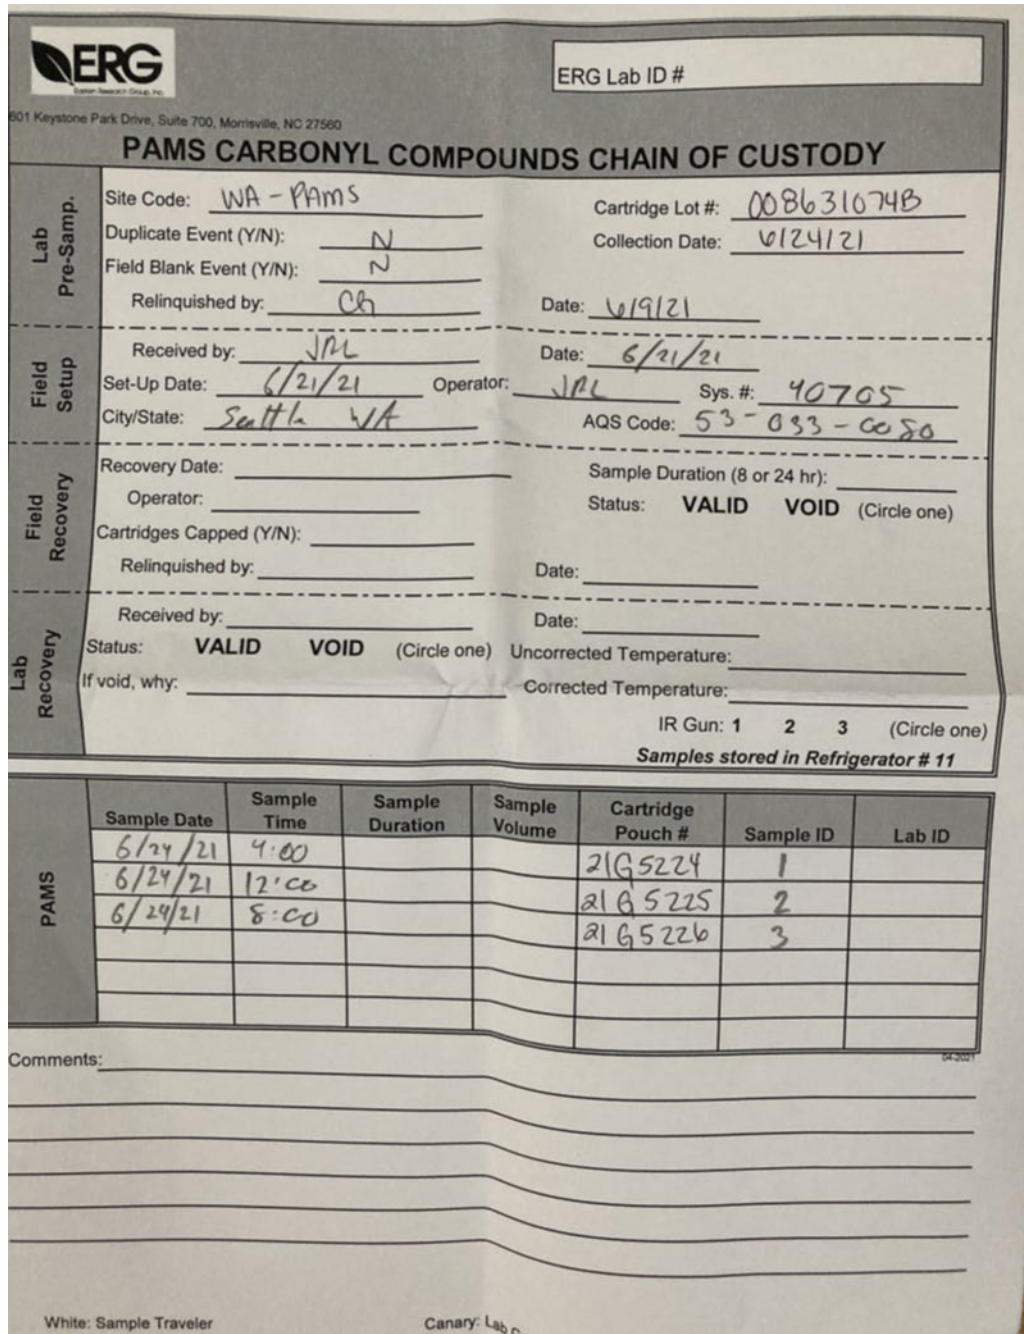 ERG
Eastern Research Group, Inc.
ERG Lab ID #
601 Keystone Park Drive, Suite 700, Morrisville, NC 27560
PAMS CARBONYL COMPOUNDS CHAIN OF CUSTODY
Lab Pre-Samp.
Site Code: WA-PAMS Cartridge Lot #: 008631074B
Duplicate Event (Y/N): N Collection Date: 6/24/21
Field Blank Event (Y/N): N
Relinquished by: Date: 6/9/21
Field Setup
Received by: Date: 6/21/21
Set-Up Date: 6/21/21 Operator: Sys. #: 40705
City/State: Seattle WA AQS Code: 53-033-0080
Field Recovery
Recovery Date: Sample Duration (8 or 24 hr):
Operator: Status: VALID VOID (Circle one)
Cartridges Capped (Y/N):
Relinquished by: Date:
Lab Recovery
Received by: Date:
Status: VALID VOID (Circle one) Uncorrected Temperature:
If void, why: Corrected Temperature:
IR Gun: 1 2 3 (Circle one)
Samples stored in Refrigerator # 11
PAMS
Sample Date Sample Time Sample Duration Sample Volume Cartridge Pouch # Sample ID Lab ID
6/24/21 4:00 21G5224 1
6/24/21 12:00 21G5225 2
6/24/21 8:00 21G5226 3
Comments:
04-2021
White: Sample Traveler Canary: Lab